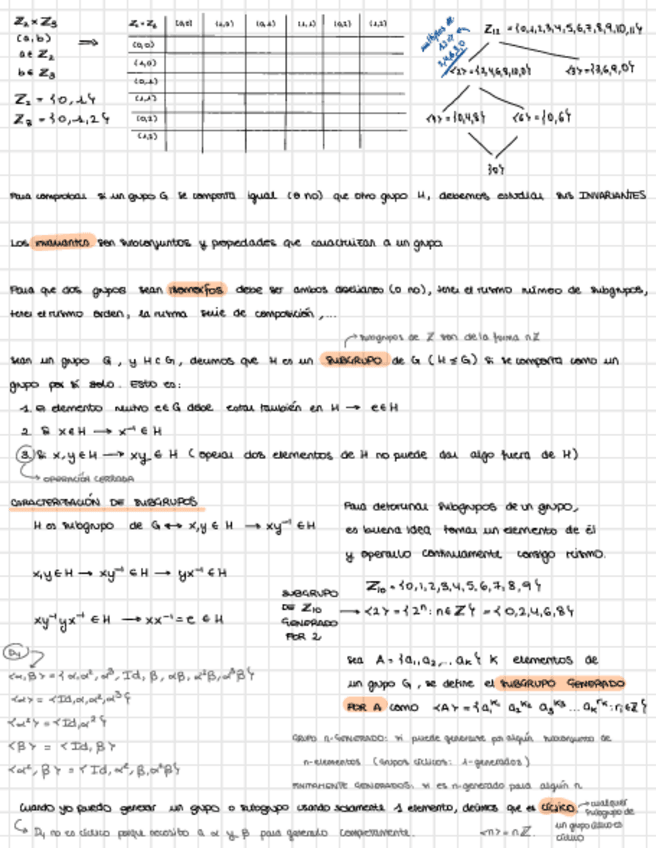 Z₂ × Z₃
(a,b)
a ∈ Z₂
b ∈ Z₃
Z₂ = {0,1}
Z₃ = {0,1,2}
Z₂ × Z₃ (0,0) (1,0) (0,1) (1,1) (0,2) (1,2)
(0,0)
(1,0)
(0,1)
(1,1)
(0,2)
(1,2)
múltiplos de
Z₁₂ = {0,1,2,3,4,5,6,7,8,9,10,11}
<2> = {2,4,6,8,10,0} <3> = {3,6,9,0}
<4> = {0,4,8} <6> = {0,6}
{0}
Para comprobar si un grupo G se comporta igual (o no) que otro grupo H, debemos estudiar sus INVARIANTES
Los invariantes son subconjuntos y propiedades que caracterizan a un grupo
Para que dos grupos sean isomorfos debe ser ambos abelianos (o no), tener el mismo número de subgrupos,
tener el mismo orden, la misma serie de composición,...
subgrupos de Z son de la forma nZ
Sean un grupo G, y H⊂G, decimos que H es un SUBGRUPO de G (H ≤ G) si se comporta como un
grupo por sí solo. Esto es:
1. El elemento neutro e∈G debe estar también en H → e∈H
2. Si x∈H → x⁻¹∈H
3. Si x,y∈H → xy∈H (operar dos elementos de H no puede dar algo fuera de H)
OPERACIÓN CERRADA
CARACTERIZACIÓN DE SUBGRUPOS
H es subgrupo de G ↔ x,y∈H → xy⁻¹∈H
x,y∈H → xy⁻¹∈H → yx⁻¹∈H
xy⁻¹yx⁻¹∈H → xx⁻¹=e∈H
Para determinar subgrupos de un grupo,
es buena idea tomar un elemento de él
y operarlo continuamente consigo mismo.
Z₁₀ = {0,1,2,3,4,5,6,7,8,9}
SUBGRUPO
DE Z₁₀
GENERADO
POR 2
→ <2> = {2ⁿ: n∈Z} = {0,2,4,6,8}
D₄
<α,β> = {α,α²,α³,Id,β,αβ,α²β,α³β}
<α> = {Id,α,α²,α³}
<α²> = {Id,α²}
<β> = {Id,β}
<α²,β> = {Id,α²,β,α²β}
Sea A = {a₁,a₂,... aₖ} k elementos de
un grupo G, se define el SUBGRUPO GENERADO
POR A como
GRUPO n-GENERADO: si puede generarse por algún subconjunto de
n-elementos (Grupos cíclicos: 1-generados)
FINITAMENTE GENERADOS: si es n-generado para algún n
Cuando yo puedo generar un grupo o subgrupo usando solamente 1 elemento, decimos que es cíclico.
→ cualquier
subgrupo de
un grupo cíclico es
cíclico
D₄ no es cíclico porque necesito a α y β para generarlo completamente.
<n> = nZ